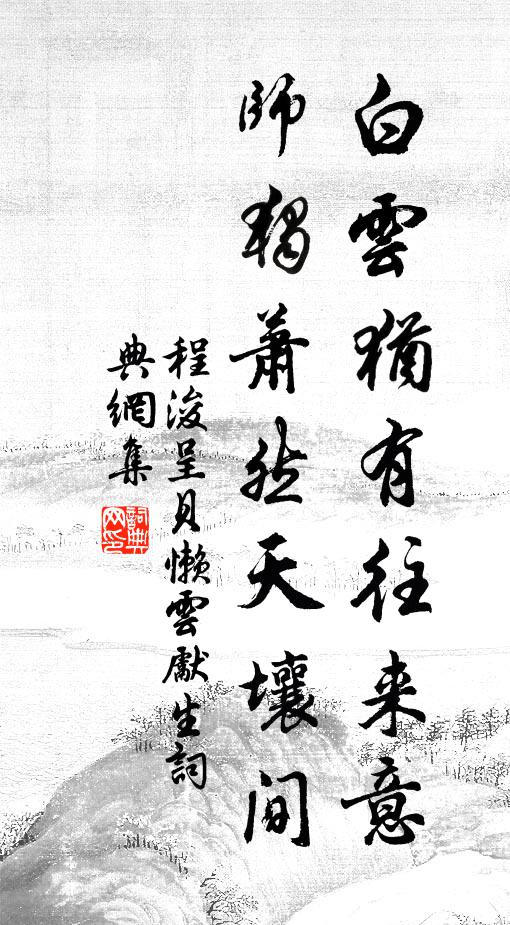 白雲猶有往来意
師獨蕭然天壤間
程浚呈貝懶雲獻生詞
典網集
詞典
网印